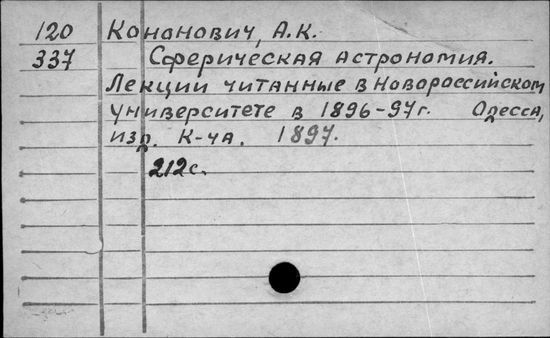 120 Кононович, А.К.
337 Сферическая астрономия.
Лекции читанные в Новороссийском
университете в 1896-97г. Одесса,
изд. К-ча. 1897.
212с.